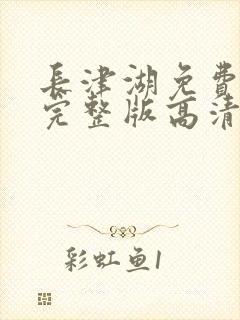 長津湖免費
完整版高清
彩虹鱼1